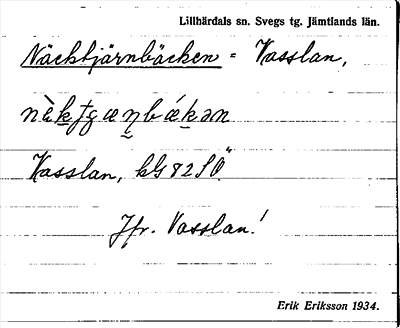 Lillhärdals sn. Svegs tg. Jämtlands län.
Näcktjärnbäcken = Vasslan,
Vasslan, bG 82 SÖ.
Jfr. Vasslan!
Erik Eriksson 1934.